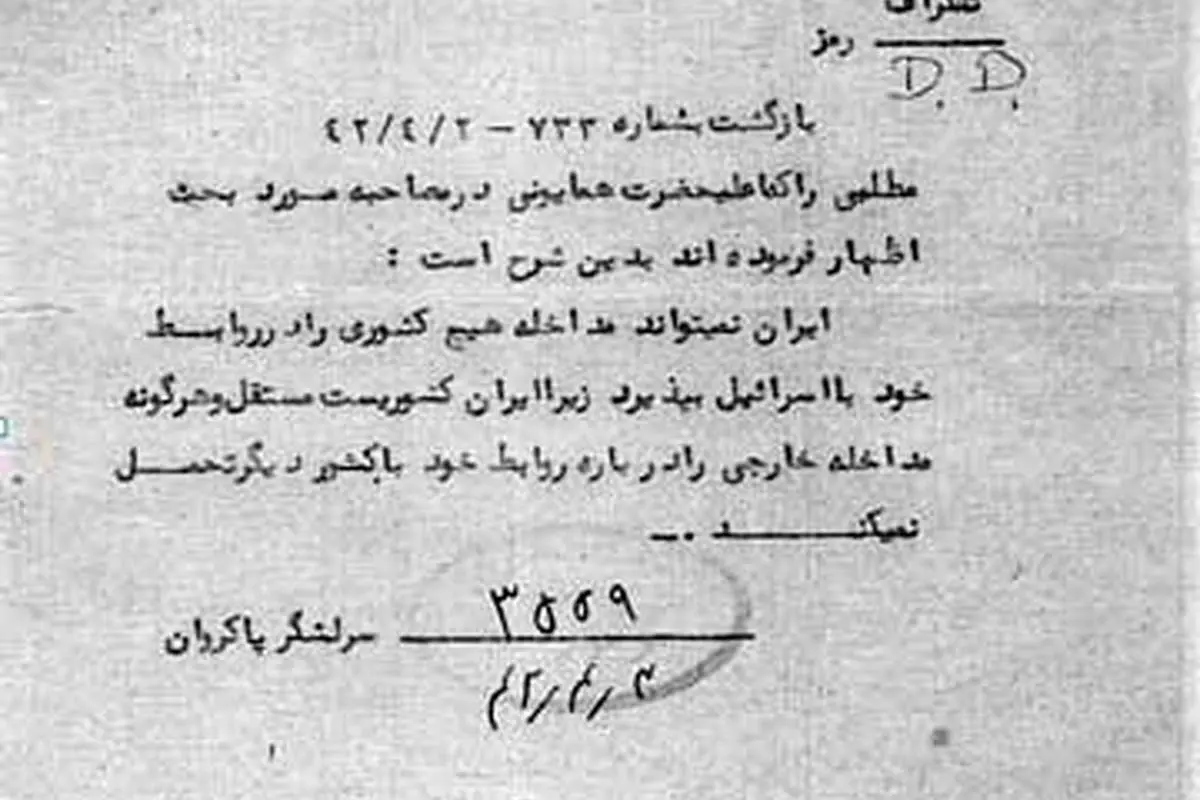 تلگراف
رمز
D. D.
بازگشت بشماره ۷۳۳ – ۴۲/۴/۲
مطلبی راکه اعلیحضرت همایونی درمصاحبه مورد بحث
اظهار فرموده اند بدین شرح است :
ایران نمیتواند مداخله هیچ کشوری رادر روابط
خود بااسرائیل بپذیرد زیراایران کشوریست مستقل وهرگونه
مداخله خارجی رادر باره روابط خود باکشور دیگرتحمل
نمیکند .
۳۵۵۹
سرلشگر پاکروان
۴۲٫۴٫۳